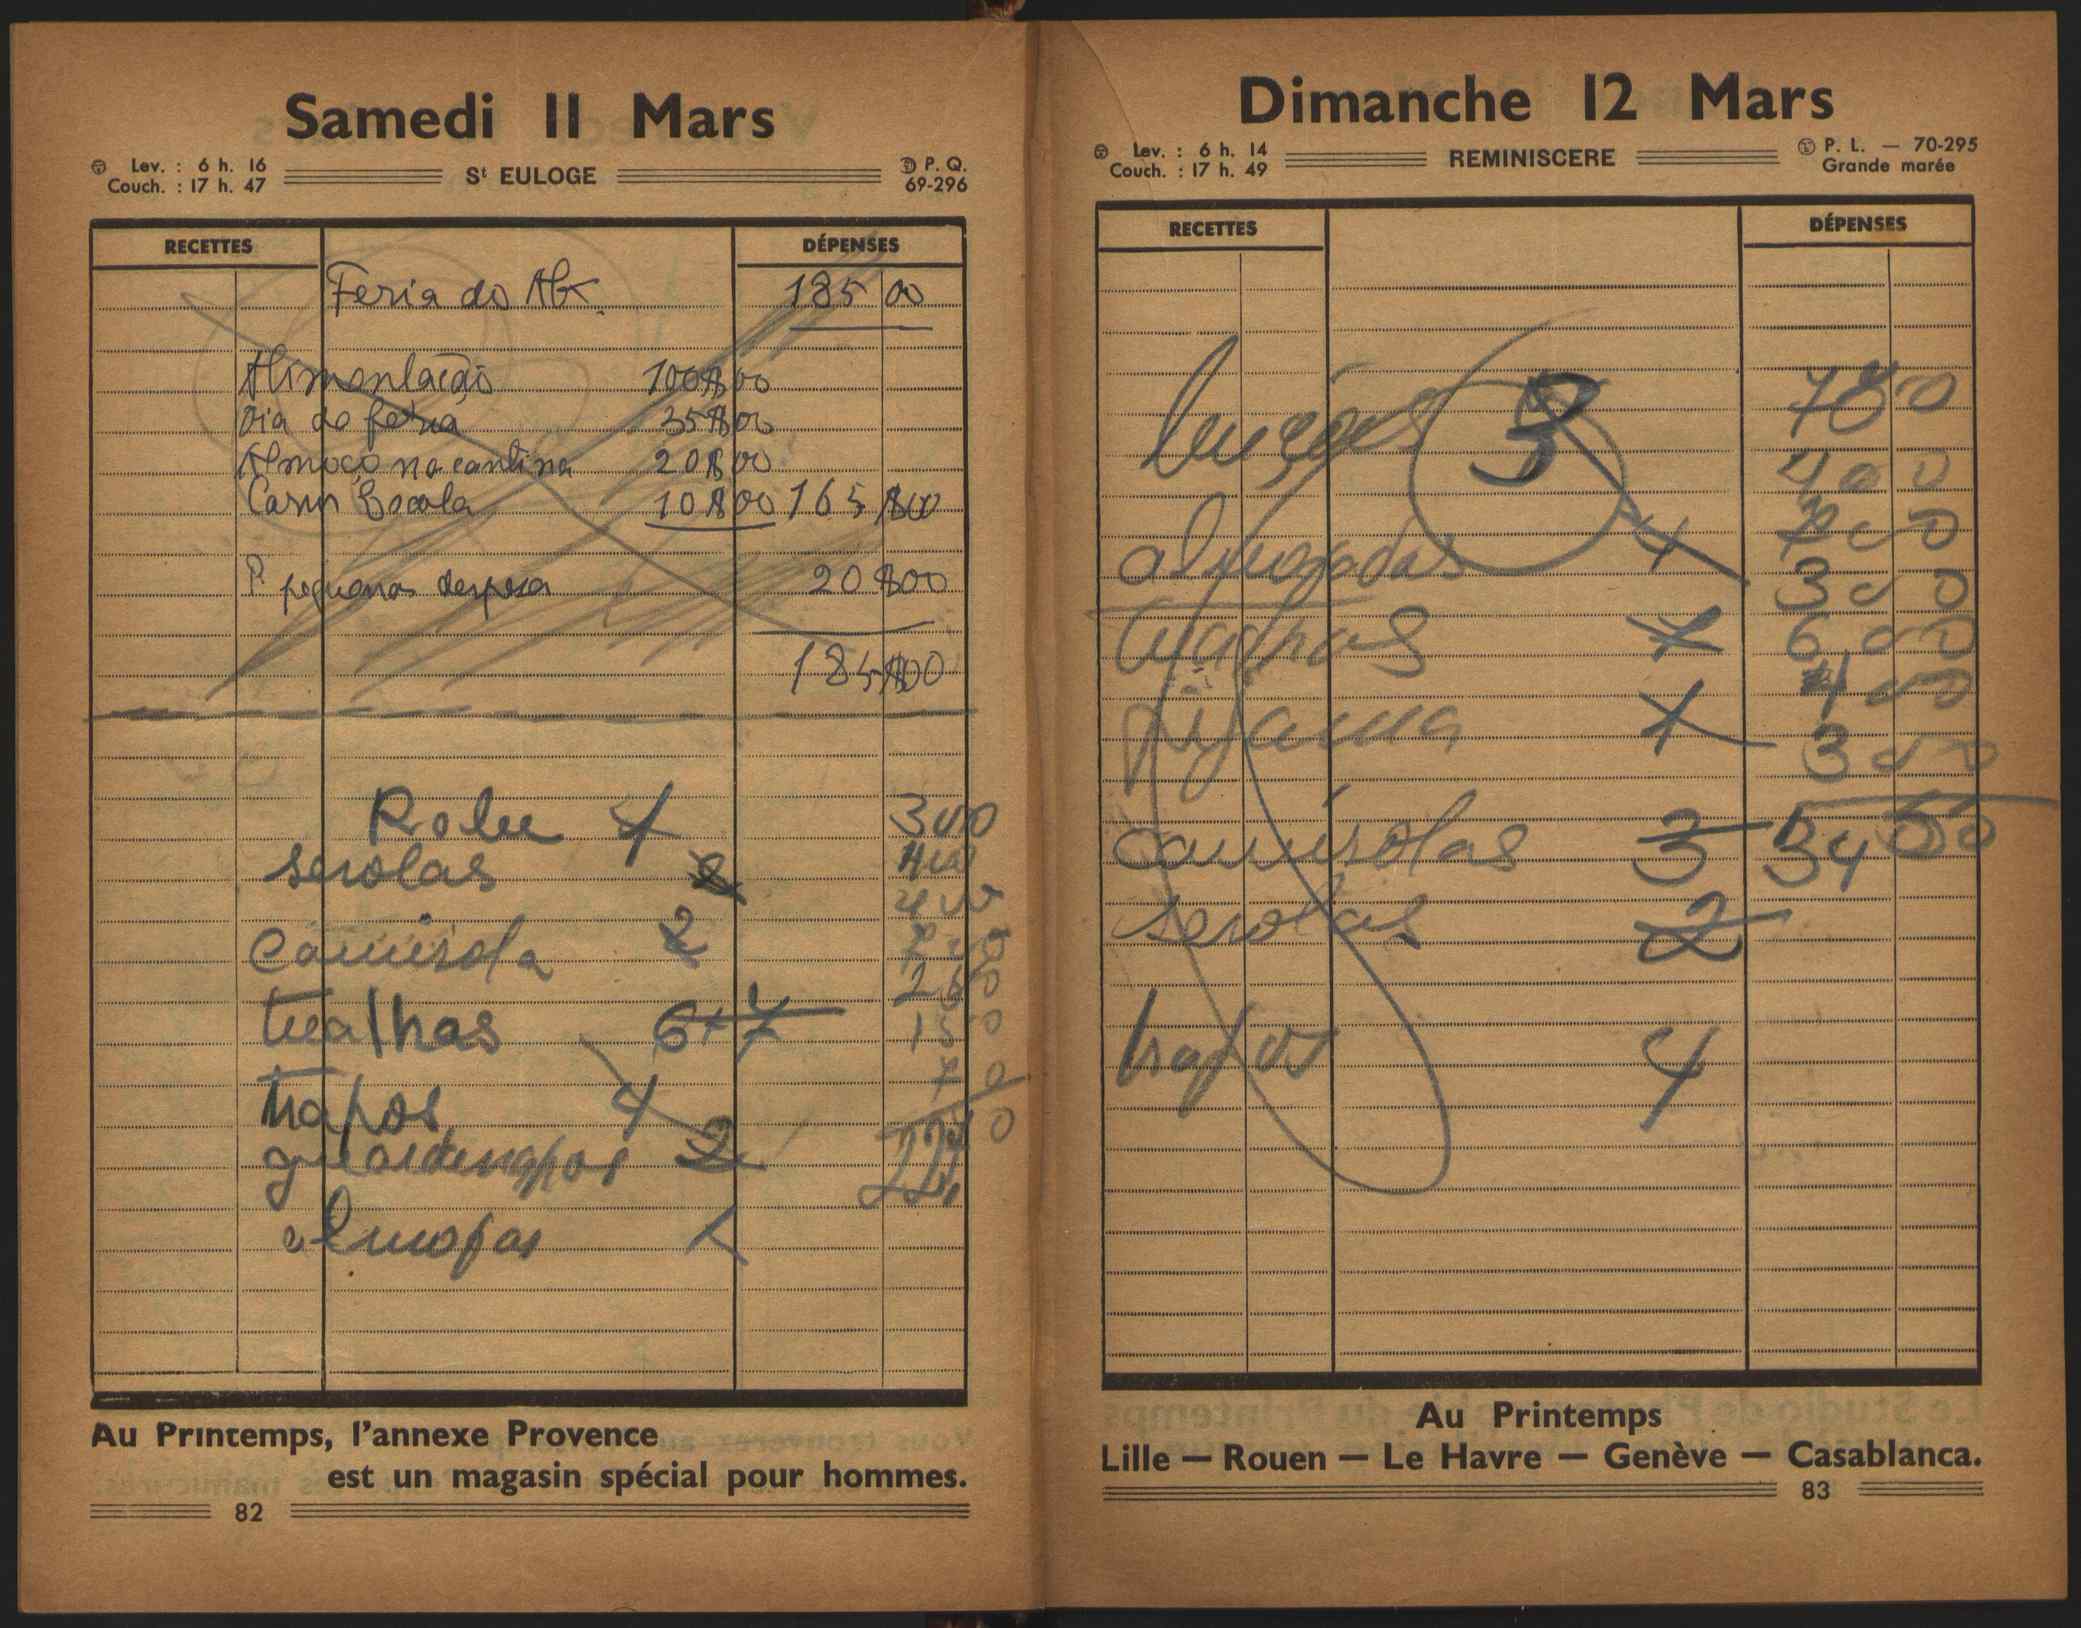 Samedi 11 Mars
Lev. : 6 h. 16
Couch. : 17 h. 47
St EULOGE
P. Q.
69-296
RECETTES
DÉPENSES
Feria do 185 00
Alimentação 100$00
Dia da feira 35$00
Almoço na cantina 20$00
Casa Escola 10$00 165$00
P. pequenas despesa 20$00
185$00
4 300
serolas
camisola 2
toalhas 6+7
150
trapos 4 70
guardanapos 2
almofas 1
Au Printemps, l'annexe Provence
est un magasin spécial pour hommes.
82
Dimanche 12 Mars
Lev. : 6 h. 14
Couch. : 17 h. 49
REMINISCERE
P. L. — 70-295
Grande marée
RECETTES
DÉPENSES
lençóes 3
400
almofadas 4
300
toalhas 7 600
400
pijama 1
300
camisolas 3 34
serolas 2
trapos 4
Au Printemps
Lille — Rouen — Le Havre — Genève — Casablanca.
83